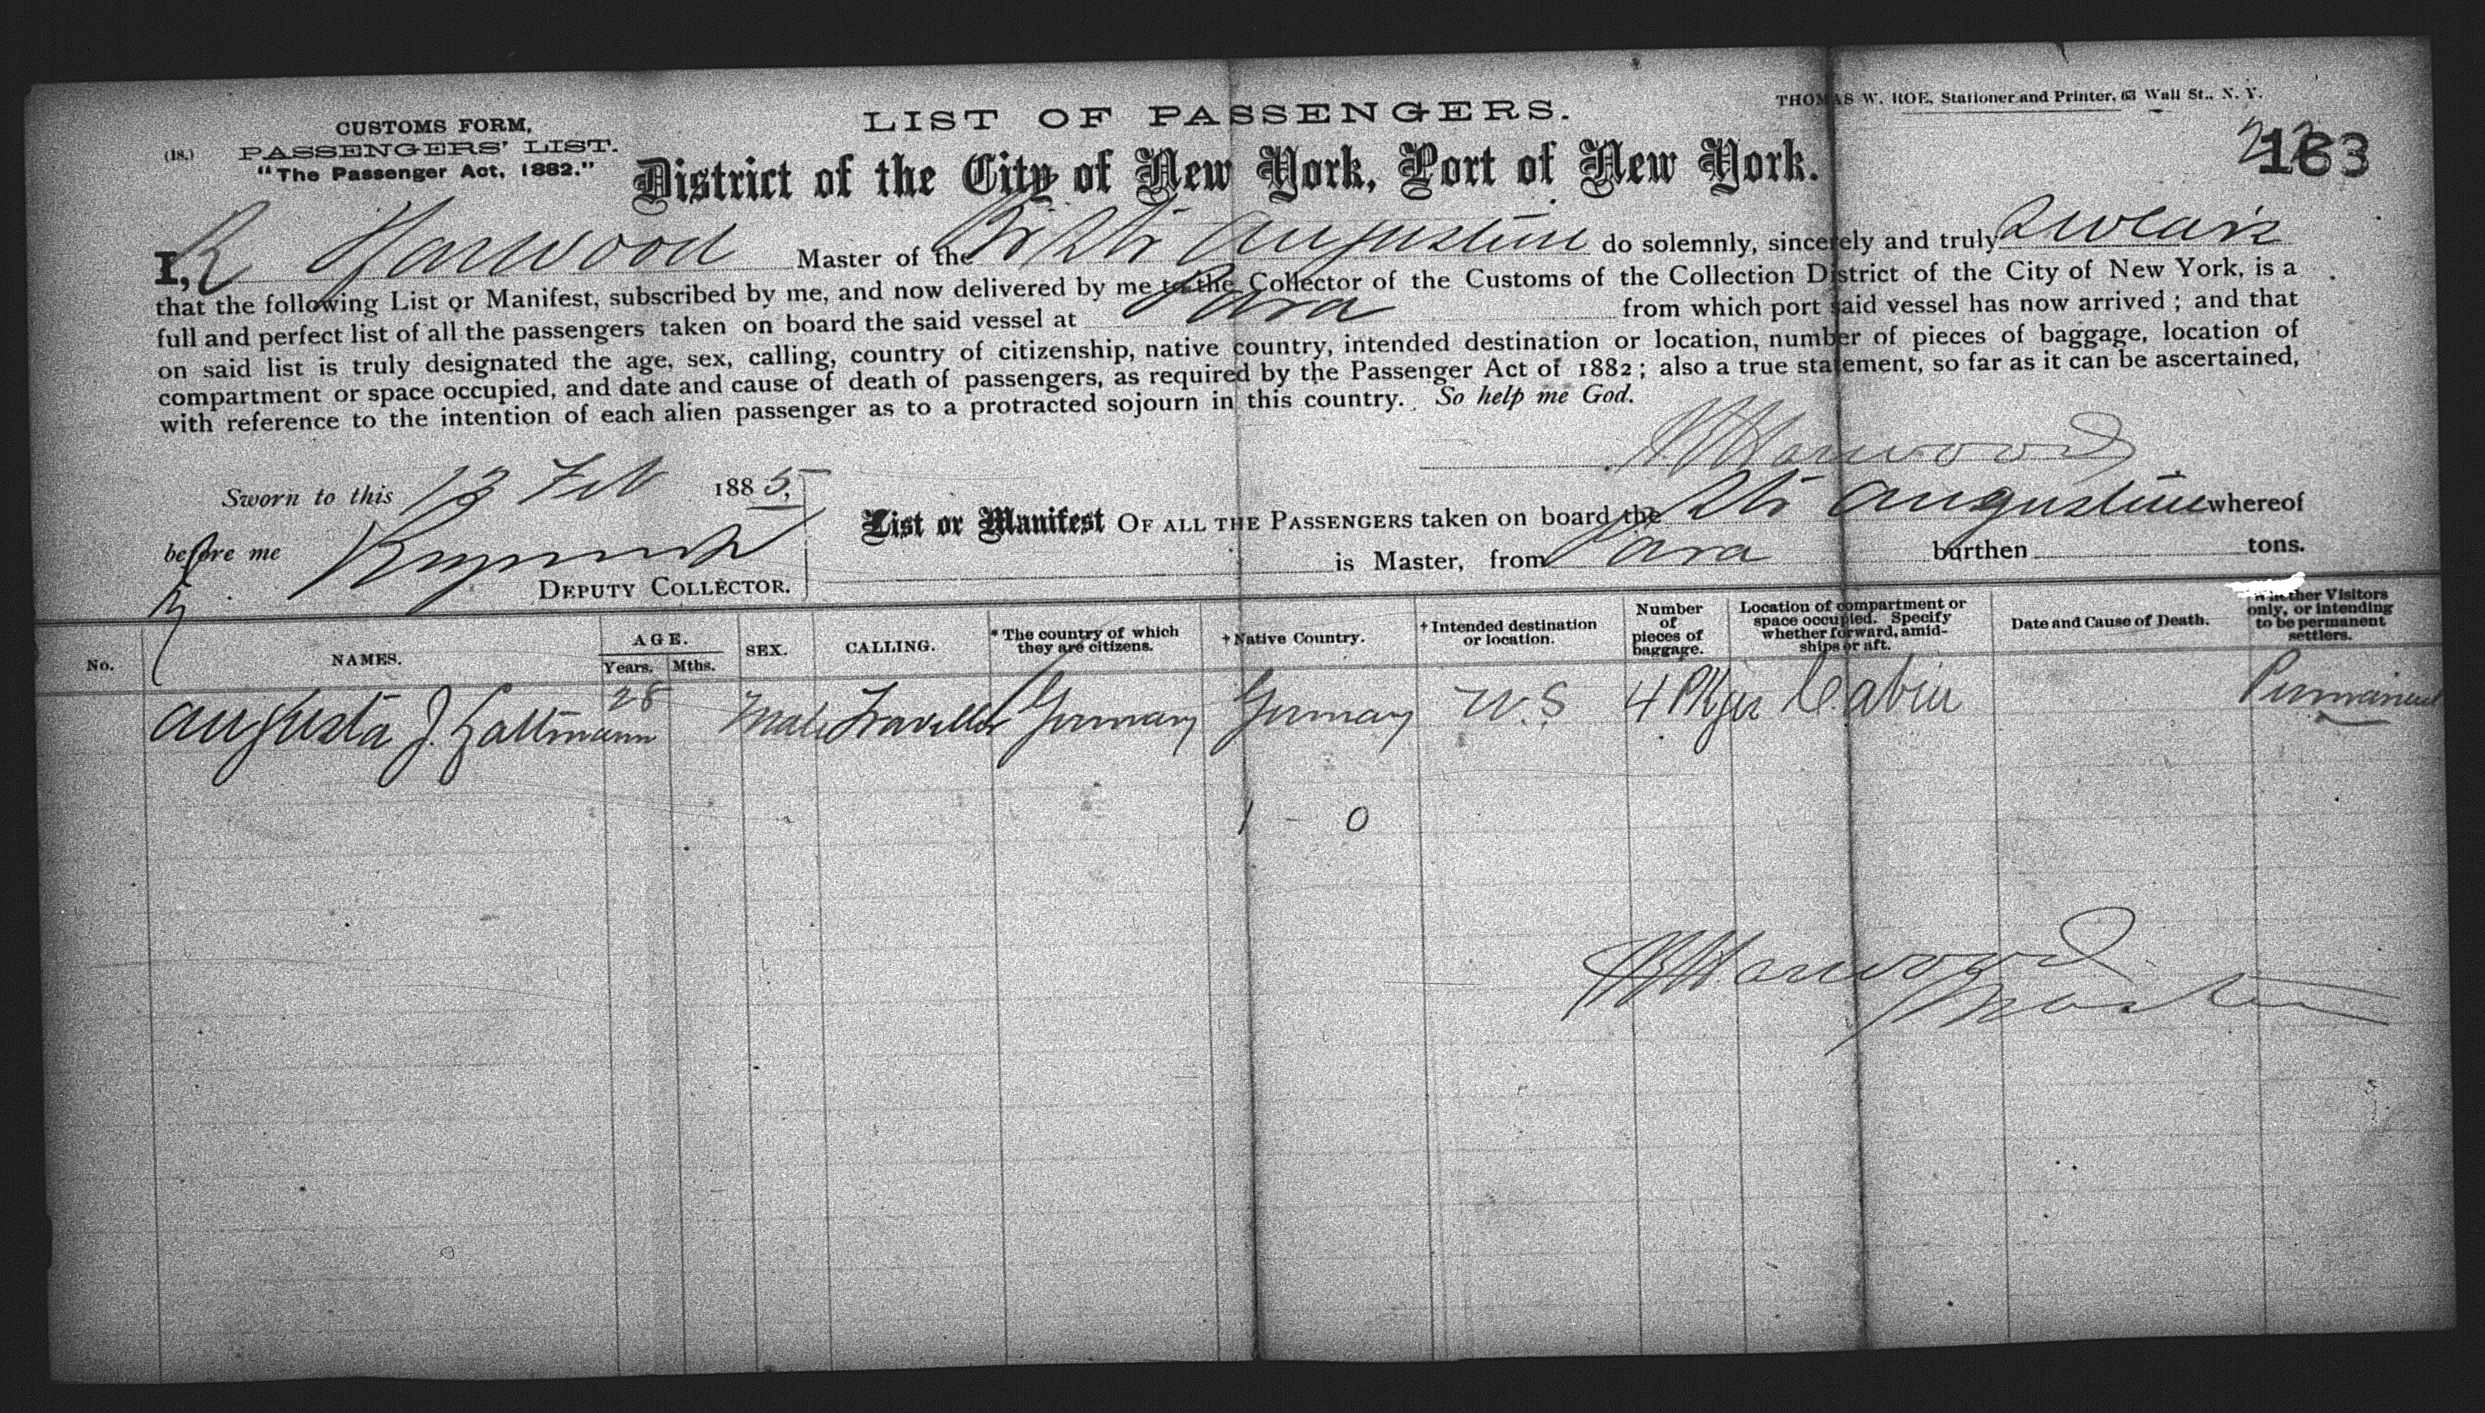 LIST OF PASSENGERS.
THOMAS W. ROE, Stationer and Printer, 63 Wall St., N. Y.
CUSTOMS FORM,
(18.) PASSENGERS' LIST.
"The Passenger Act, 1882."
District of the City of New York, Port of New York.
163
I, R Harwood Master of the Br Str Augustine do solemnly, sincerely and truly swear
that the following List or Manifest, subscribed by me, and now delivered by me to the Collector of the Customs of the Collection District of the City of New York, is a
full and perfect list of all the passengers taken on board the said vessel at Para from which port said vessel has now arrived; and that
on said list is truly designated the age, sex, calling, country of citizenship, native country, intended destination or location, number of pieces of baggage, location of
compartment or space occupied, and date and cause of death of passengers, as required by the Passenger Act of 1882; also a true statement, so far as it can be ascertained,
with reference to the intention of each alien passenger as to a protracted sojourn in this country. So help me God.
Harwood
Sworn to this 13 Feb 1885,
List or Manifest OF ALL THE PASSENGERS taken on board the Str Augustine whereof
before me
is Master, from Para burthen tons.
DEPUTY COLLECTOR.
No. NAMES. AGE. Years. Mths. SEX. CALLING. * The country of which they are citizens. † Native Country. † Intended destination or location. Number of pieces of baggage. Location of compartment or space occupied. Specify whether forward, amidships or aft. Date and Cause of Death. Whether Visitors only, or intending to be permanent settlers.
Augusta J. 28 Male Traveller Germany Germany U.S 4 Pkgs Cabin Permanent
1 - 0
Harwood
Master